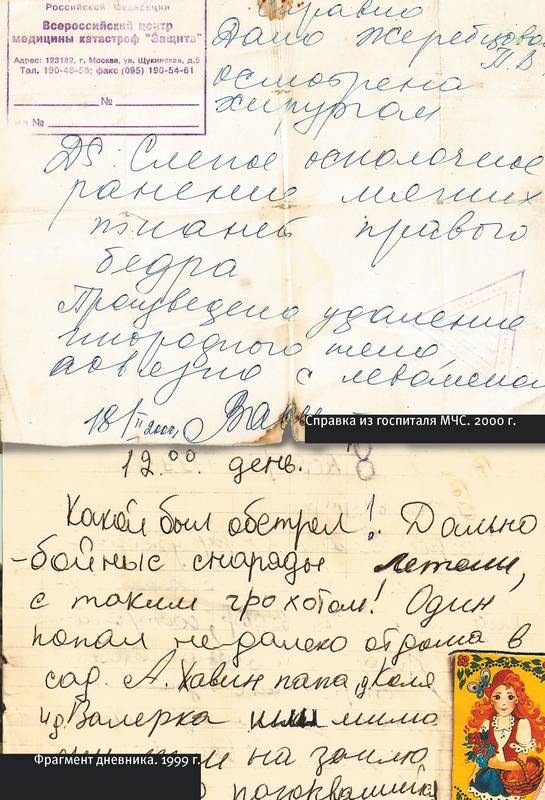 Российской Федерации
Всероссийский центр
медицины катастроф "Защита"
Адрес: 123182, г. Москва, ул. Щукинская, д.5
Тел. 190-46-53; факс (095) 190-54-61
№
на №
Справка
Дана Жеребцовой
П. В.
осмотрена
хирургом
DS: Слепое осколочное
ранение мягких
тканей правого
бедра
Произведено удаление
инородного тела,
повязка с левомеколем
18/II 2000г.
Справка из госпиталя МЧС. 2000 г.
12.00 день.
Какой был обстрел! Дально
-бойные снаряды летели,
с таким грохотом! Один
попал не далеко от дома в
сад. А. Хавин папа, д Коля
и д Валерка шли мимо
на землю
Фрагмент дневника. 1999 г.